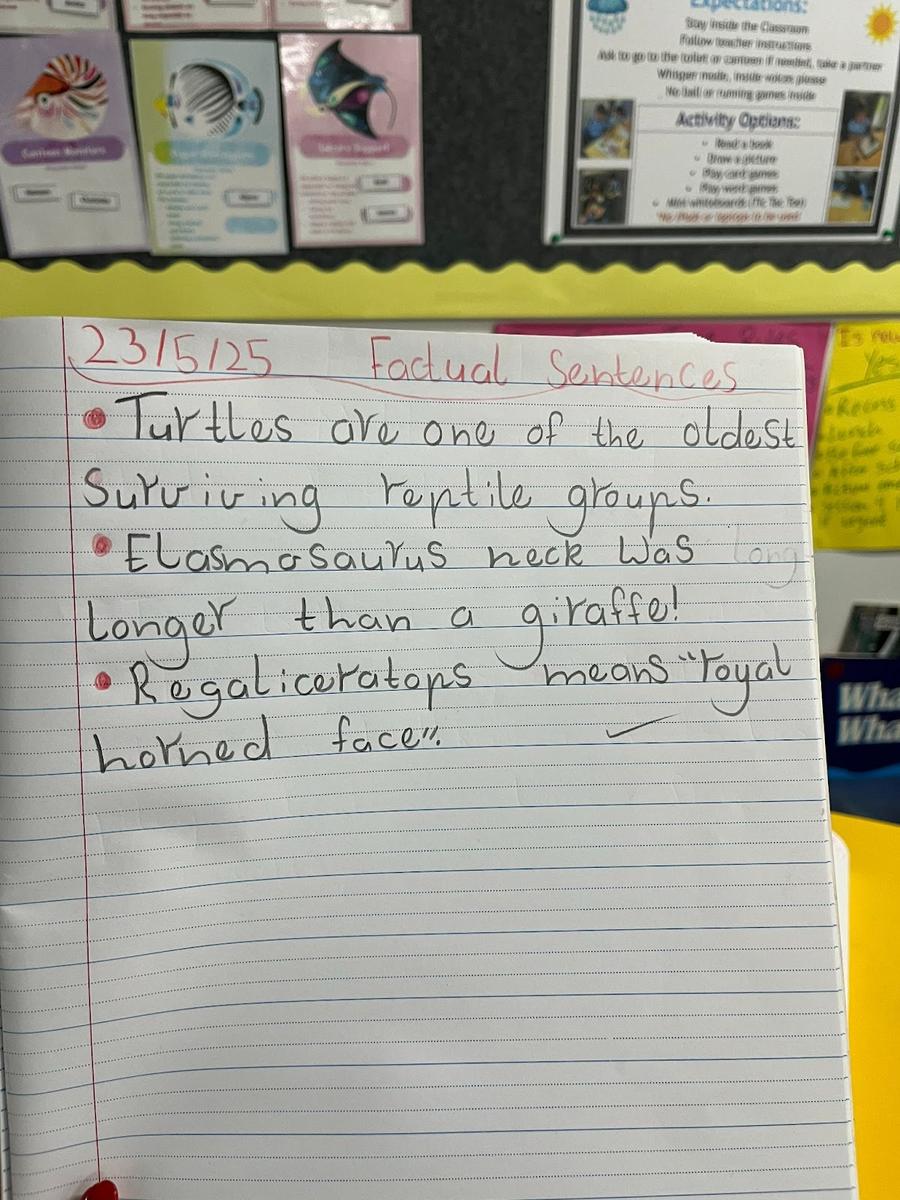 Expectations:
Stay inside the Classroom
Follow teacher instructions
Ask to go to the toilet or canteen if needed, take a partner
Whisper mode, inside voices please
No ball or running games inside
Activity Options:
Read a book
Draw a picture
Play card games
Play word games
Mini whiteboards (Tic Tac Toe)
23/5/25 Factual Sentences
• Turtles are one of the oldest
Surviving reptile groups.
• Elasmosaurus neck was long
longer than a giraffe!
• Regaliceratops means "royal
horned face".
Is you
Yes
Recess
Wha
Wha